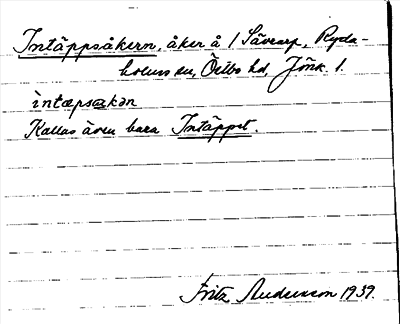 Intäppsåkern, åker å 1 Sävearp, Ryda-
holms sn, Östbo hd, Jönk. l.
intæpsakən
Kallas även bara Intäppet.
Fritz Anderson 1939.